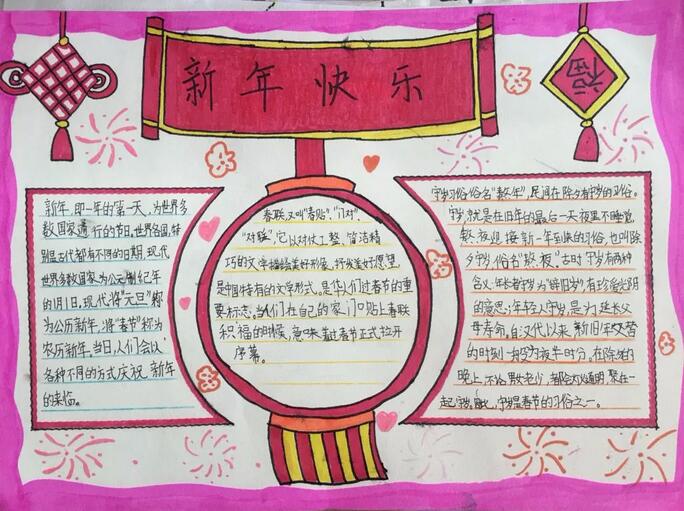 新年快乐
福
新年，即一年的第一天，为世界多
数国家通行的节日。世界各国，特
别是古代都有不同的日期，现代
世界多数国家为公元制纪年
的1月1日。现代将"元旦"称
为公历新年，将"春节"称为
农历新年。当日，人们会以
各种不同的方式庆祝新年
的来临。
春联，又叫"春贴"、"门对"、
"对联"，它以对仗工整、简洁精
巧的文字描绘美好形象，抒发美好愿望，
是中国特有的文学形式。是人们过春节的重
要标志。当人们在自己的家门口贴上春联
积福的时候，意味着过春节正式拉开
序幕。
守岁习俗俗名"熬年"，民间在除夕有守岁的习俗。
守岁，就是在旧年的最后一天夜里不睡觉
熬夜迎接新一年到来的习俗，也叫除
夕守岁，俗名"熬夜"。古时守岁有两种
含义：年长者守岁为"辞旧岁"，有珍爱光阴
的意思；年轻人守岁，是为延长父
母寿命。自汉代以来，新旧年交替
的时刻一般为夜半时分。在除夕的
晚上，不论男女老少，都会灯火通明，聚在一
起守岁。守岁是春节的习俗之一。